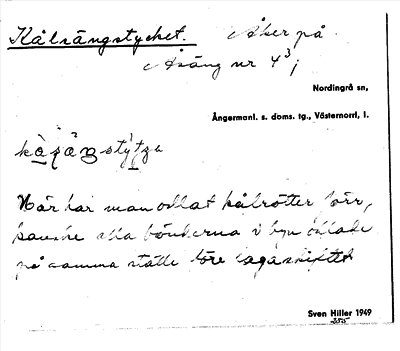 Kålsängstycket. Åker på
Åsäng nr 4³;
Nordingrå sn,
Ångermanl. s. doms. tg., Västernorrl, l.
Här har man odlat kålrötter förr,
kanske alla bönderna i byn odlade
på samma ställe före lagaskiftet
Sven Hiller 1949